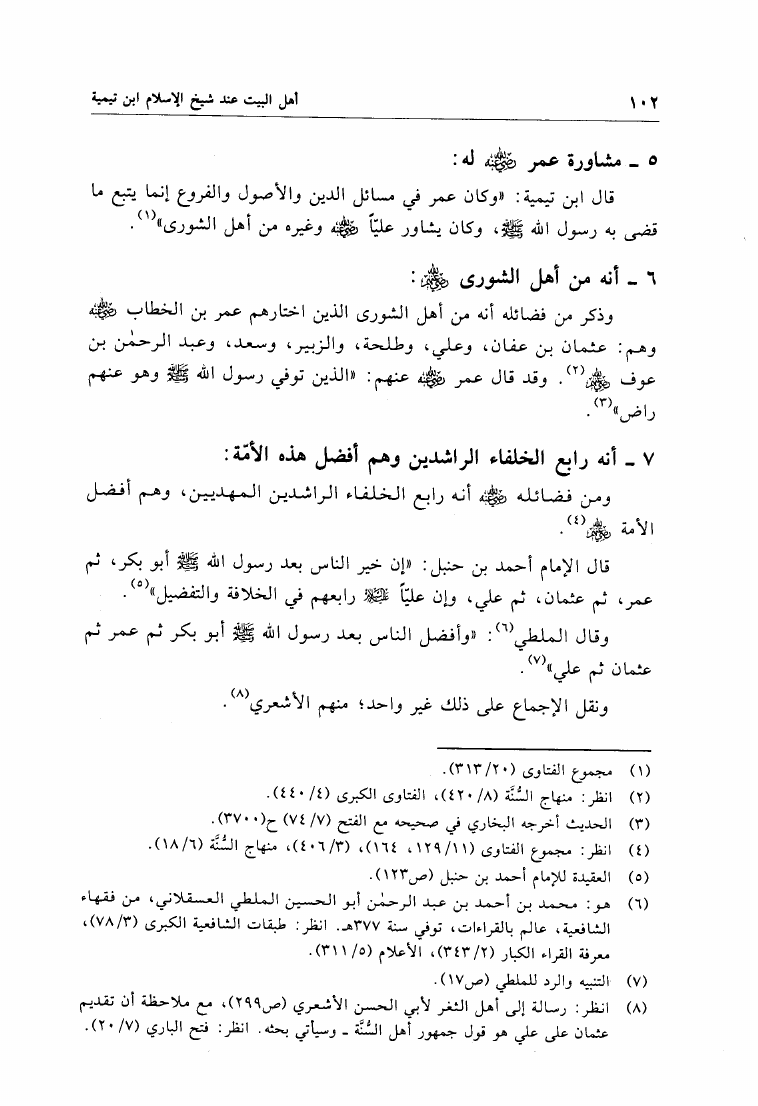 ١٠٢ أهل البيت عند شيخ الإسلام ابن تيمية
٥ ـ مشاورة عمر رضي الله عنه له:
قال ابن تيمية: «وكان عمر في مسائل الدين والأصول والفروع إنما يتبع ما
قضى به رسول الله ﷺ، وكان يشاور عليّاً رضي الله عنه وغيره من أهل الشورى»(١).
٦ ـ أنه من أهل الشورى رضي الله عنهم:
وذكر من فضائله أنه من أهل الشورى الذين اختارهم عمر بن الخطاب رضي الله عنه
وهم: عثمان بن عفان، وعلي، وطلحة، والزبير، وسعد، وعبد الرحمٰن بن
عوف رضي الله عنهم(٢). وقد قال عمر رضي الله عنه عنهم: «الذين توفي رسول الله ﷺ وهو عنهم
راض»(٣).
٧ ـ أنه رابع الخلفاء الراشدين وهم أفضل هذه الأمّة:
ومن فضائله رضي الله عنه أنه رابع الخلفاء الراشدين المهديين، وهم أفضل
الأمة رضي الله عنهم(٤).
قال الإمام أحمد بن حنبل: «إن خير الناس بعد رسول الله ﷺ أبو بكر، ثم
عمر، ثم عثمان، ثم علي، وإن عليّاً عليه السلام رابعهم في الخلافة والتفضيل»(٥).
وقال الملطي(٦): «وأفضل الناس بعد رسول الله ﷺ أبو بكر ثم عمر ثم
عثمان ثم علي»(٧).
ونقل الإجماع على ذلك غير واحد؛ منهم الأشعري(٨).
(١) مجموع الفتاوى (٣١٣/٢٠).
(٢) انظر: منهاج السُّنَّة (٤٢٠/٨)، الفتاوى الكبرى (٤٤٠/٤).
(٣) الحديث أخرجه البخاري في صحيحه مع الفتح (٧٤/٧) ح(٣٧٠٠).
(٤) انظر: مجموع الفتاوى (١٢٩/١١، ١٦٤)، (٤٠٦/٣)، منهاج السُّنَّة (١٨/٦).
(٥) العقيدة للإمام أحمد بن حنبل (ص١٢٣).
(٦) هو: محمد بن أحمد بن عبد الرحمٰن أبو الحسين الملطي العسقلاني، من فقهاء
الشافعية، عالم بالقراءات، توفي سنة ٣٧٧هـ. انظر: طبقات الشافعية الكبرى (٧٨/٣)،
معرفة القراء الكبار (٣٤٣/٢)، الأعلام (٣١١/٥).
(٧) التنبيه والرد للملطي (ص١٧).
(٨) انظر: رسالة إلى أهل الثغر لأبي الحسن الأشعري (ص٢٩٩)، مع ملاحظة أن تقديم
عثمان على علي هو قول جمهور أهل السُّنَّة ـ وسيأتي بحثه. انظر: فتح الباري (٢٠/٧).